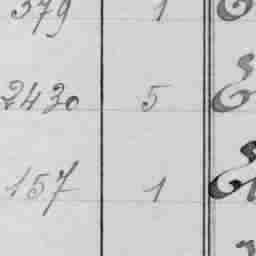 379 1
2430 5
157 1